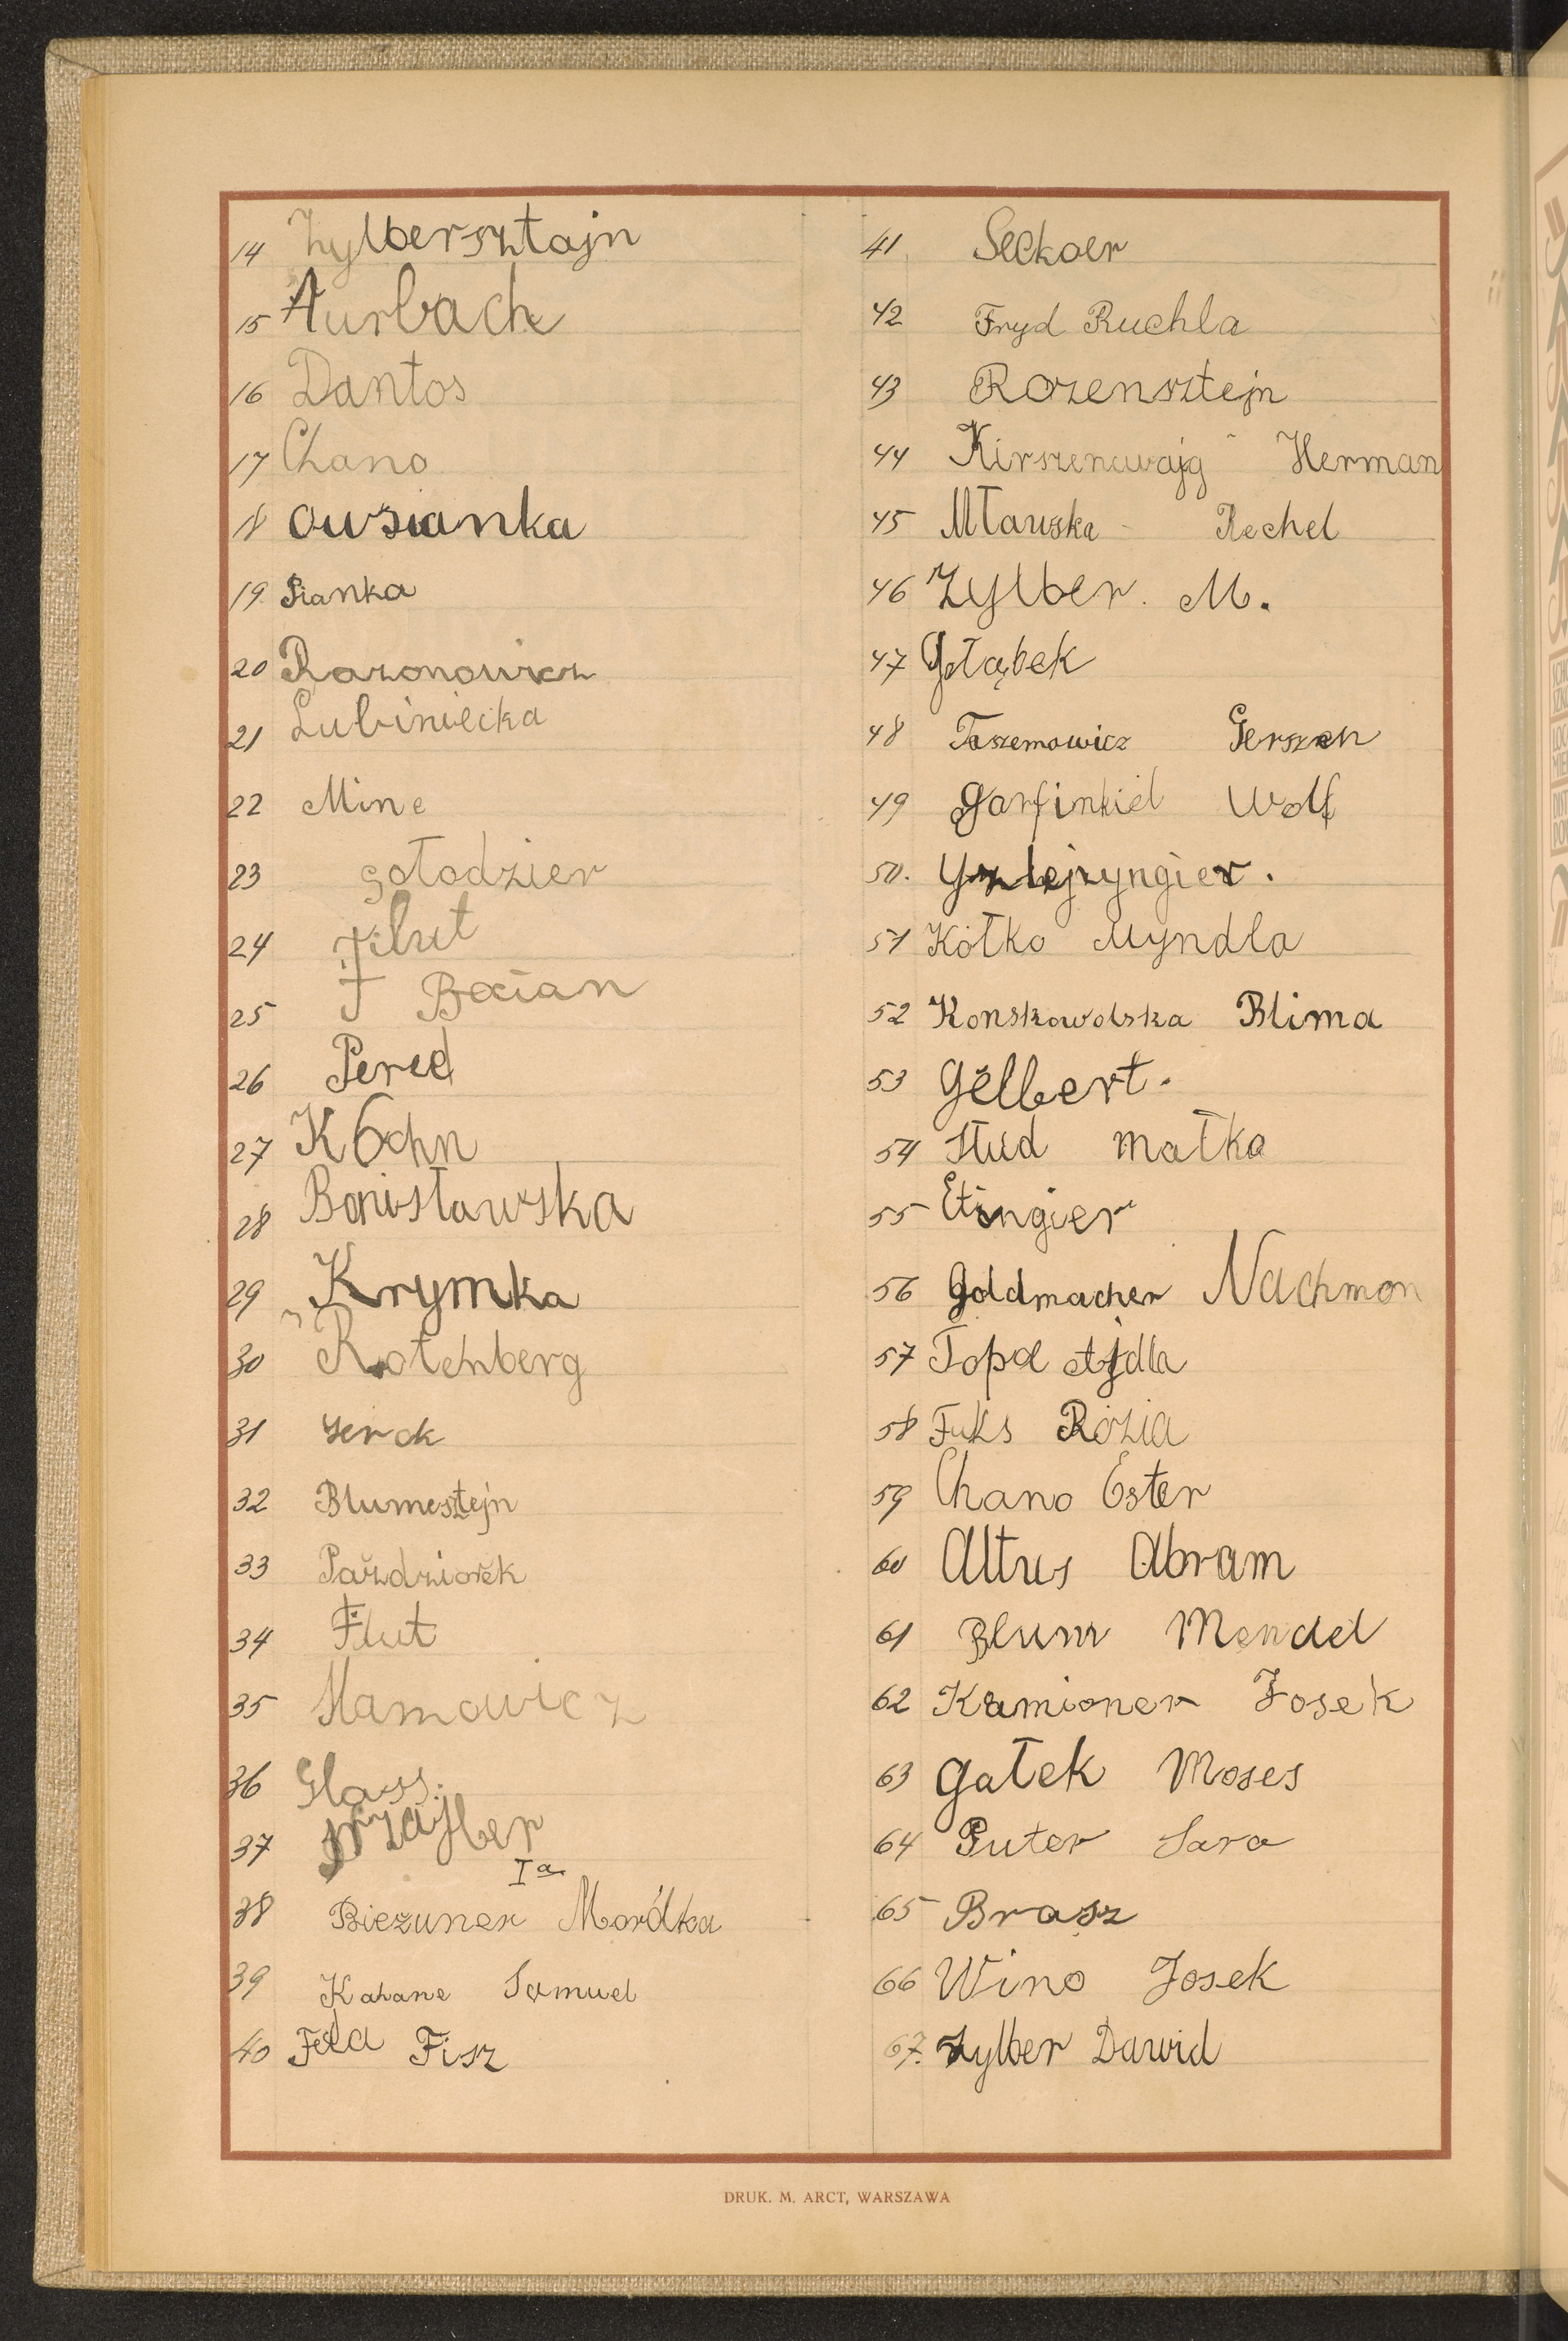 14 Zylbersztajn
15 Aurbach
16 Dantos
17 Chano
18 Owsianka
19 Pianka
20 Razonowicz
21 Lubiniecka
22 Mine
23 gołodzier
24
25 J Bocian
26 Pered
27 K
28 Bonisławska
29 Krymka
30 Rotenberg
31
32 Blumesztejn
33 Pażdziorek
34 Flut
35 Mamowicz
36 Glass.
37 Szajber
Ia
38 Bieżuner Mordka
39 Kahane Samuel
40 Fela Fisz
41 Sekoer
42 Fryd Ruchla
43 Rozensztejn
44 Kirszenwajg Herman
45 Mławska - Rechel
46 Zylber. M.
47 Gołąbek
48 Taszemowicz Gerszon
49 Garfinkiel Wolf
50.
51 Kotko Myndla
52 Konskowolska Blima
53 Gelbert.
54 Małka
55 Etingier
56 Goldmacher Nachmon
57 Topol Ajdla
58 Fuks Rózia
59 Chano Ester
60 Altus Abram
61 Blum Mendel
62 Kamioner Josek
63 Gałek Moses
64 Puter Sara
65 Brasz
66 Wino Josek
67. Zylber Dawid
DRUK. M. ARCT, WARSZAWA